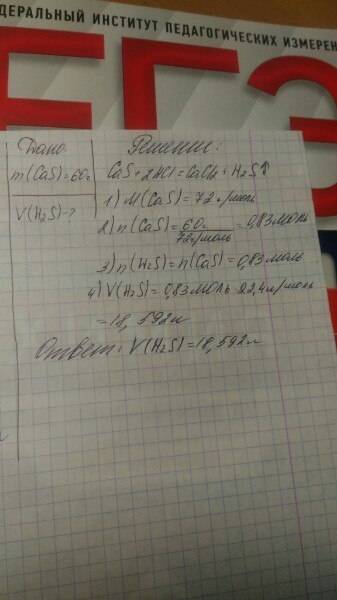 ФЕДЕРАЛЬНЫЙ ИНСТИТУТ ПЕДАГОГИЧЕСКИХ ИЗМЕРЕН
ЕГЭ
Дано:
m(CaS)=60г
V(H₂S)-?
Решение:
CaS+2HCl=CaCl₂+H₂S↑
1) M(CaS)=72 г/моль
2) n(CaS)=60г/72г/моль=0,83моль
3) n(H₂S)=n(CaS)=0,83 моль
4) V(H₂S)=0,83моль·22,4л/моль
=18,592л
Ответ: V(H₂S)=18,592л